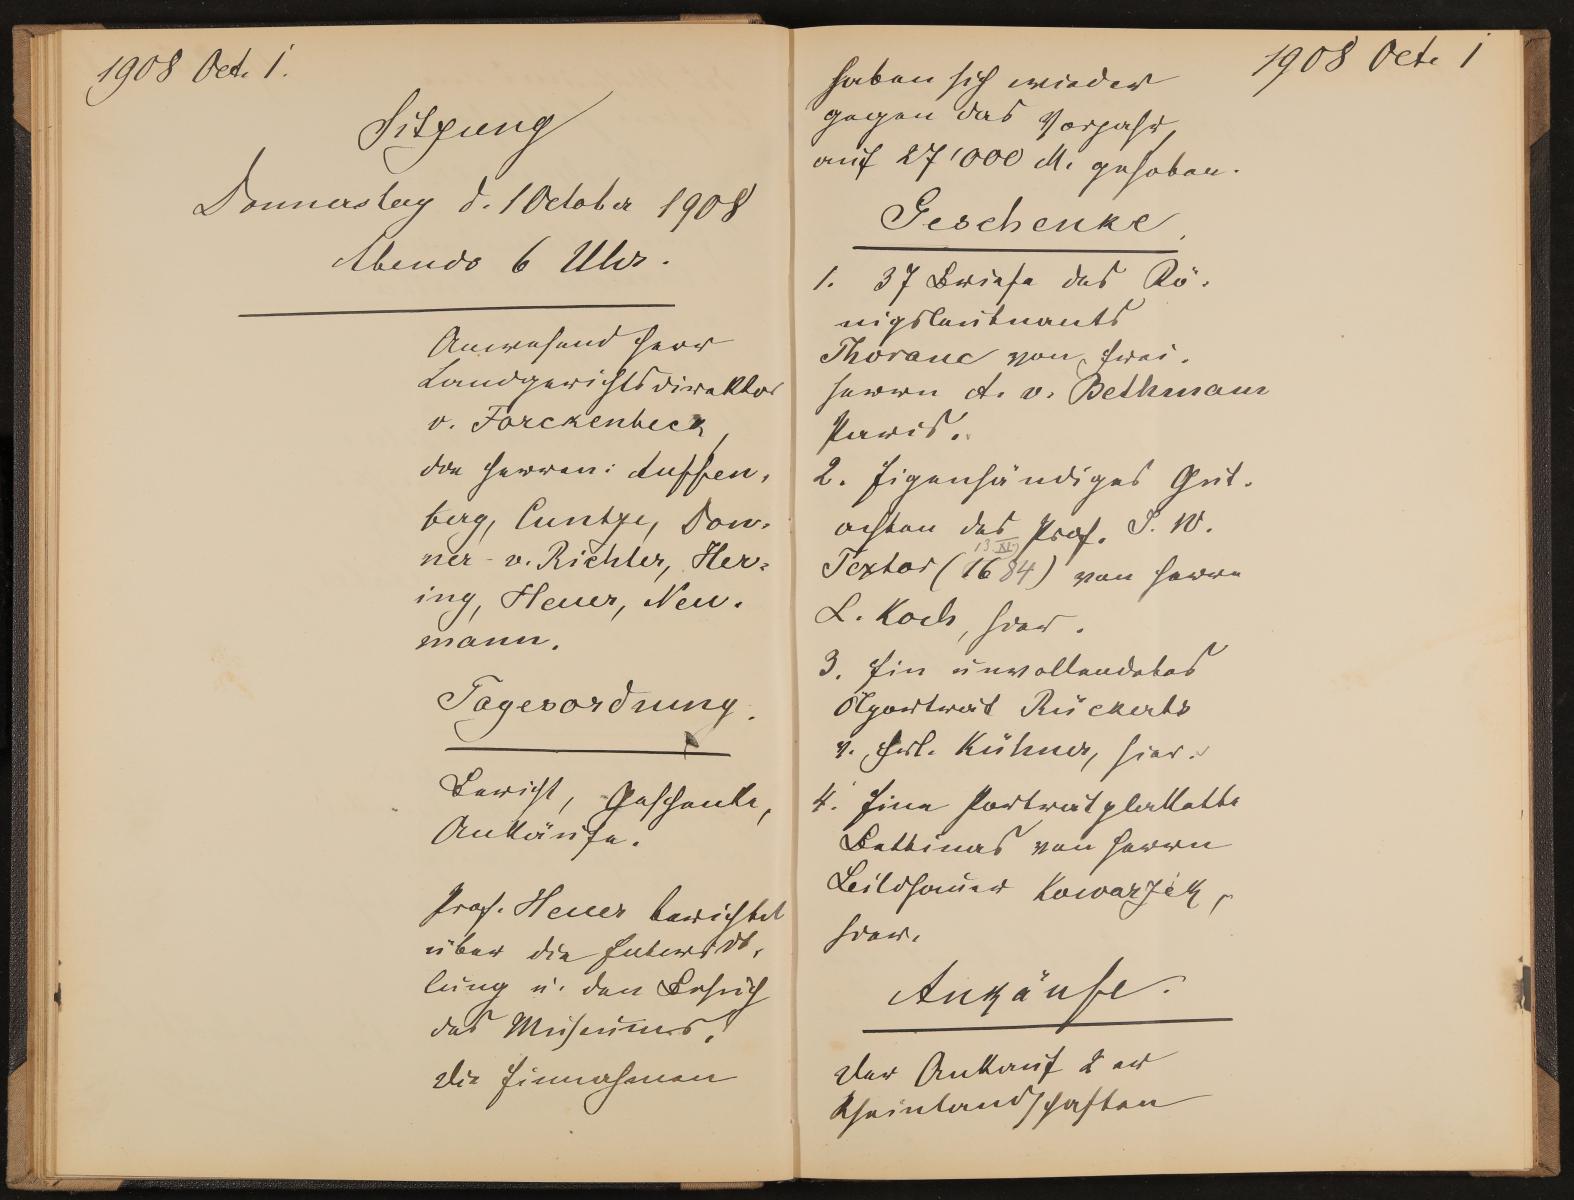 1908 Oct. 1.
Sitzung
Donnerstag d. 1 October 1908
Abends 6 Uhr.
Anwesend Herr
Landgerichtsdirektor
v. Forckenbeck,
die Herren: Auffen-
berg, Cuntze, Don-
ner-v. Richter, Her-
ing, Heuer, Neu-
mann.
Tagesordnung.
Bericht, Geschenke,
Ankäufe.
Prof. Heuer berichtet
über die Entwick-
lung u. den Besuch
des Museums.
Die Einnahmen
1908 Oct. 1
haben sich wieder
gegen das Vorjahr,
auf 27'000 M. gehoben.
Geschenke.
1. 37 Briefe des Kö-
nigsleutnants
Thoranc von Frei-
herrn A. v. Bethmann
Paris.
2. Eigenhändiges Gut-
achten des Prof. J. W.
13. XI.
Textor (1684) von Herrn
L. Koch, hier.
3. Ein unvollendetes
Ölportrait Rückerts
v. Frl. Kühner, hier.
4. Eine Portraitplakette
Bettinas von Herrn
Bildhauer Kowarzik,
hier.
Ankäufe.
Der Ankauf 2er
Rheinlandschaften